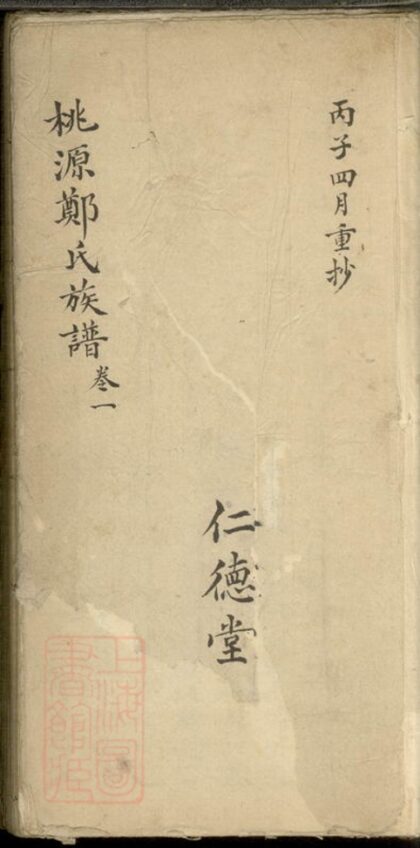 丙子四月重抄
仁德堂
桃源鄭氏族譜 卷一
上海圖
書館藏